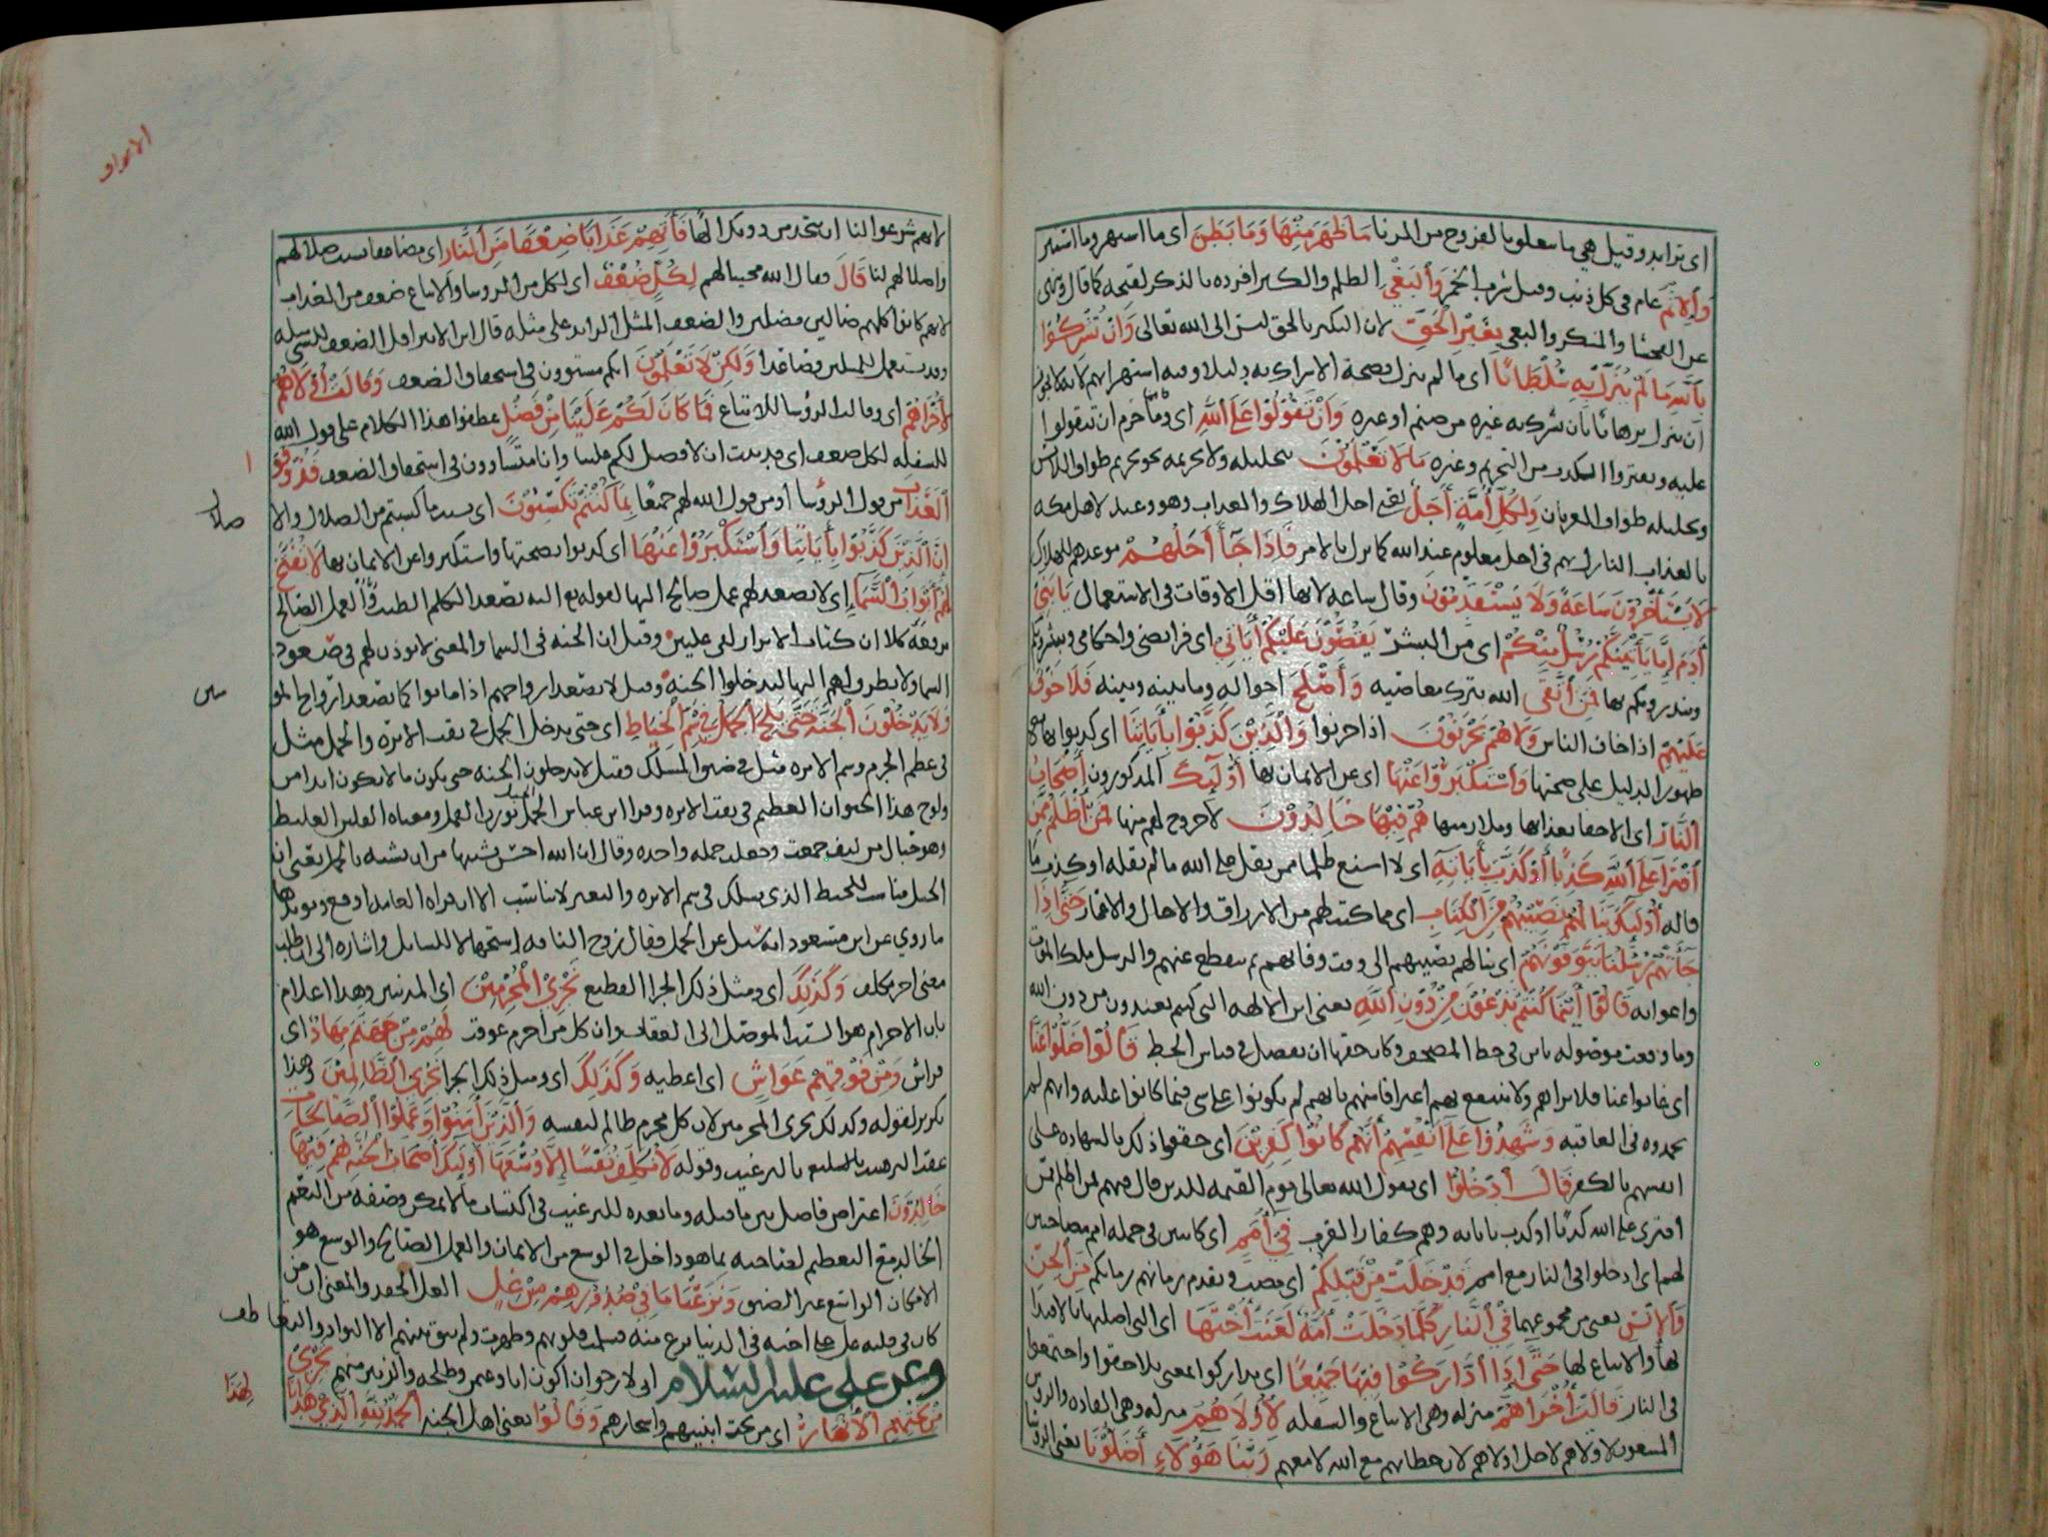 اى تزايد وقيل هي ما يتعلق بالفروج من الزنا مَا ظَهَرَ مِنْهَا وَمَا بَطَنَ اى ما اشتهر وما استتر
وَالإِثْمَ عام فى كل ذنب وقيل شرب الخمر وَالْبَغْيَ الظلم والكبر افرده بالذكر لقبحه كما قال وينهى
عن الفحشا والمنكر والبغى بِغَيْرِ الْحَقِّ لان التكبر بالحق ليس الى الله تعالى وَأَنْ تُشْرِكُوا
بِاللَّهِ مَا لَمْ يُنَزِّلْ بِهِ سُلْطَانًا اى ما لم ينزل بصحة الاشراك به دليلا وفيه استهزا بهم لانه لا يجوز
ان ينزل برهانا بان يشرك به غيره من صنم او غيره وَأَنْ تَقُولُوا عَلَى اللَّهِ اى ومما حرم ان تتقولوا
عليه وتفتروا الكذب من التحريم وغيره مَا لَا تَعْلَمُونَ تحليله ولا تحريمه نحو تحريم طواف اللابس
وتحليله طواف العريان وَلِكُلِّ أُمَّةٍ أَجَلٌ يعنى اجل الهلاك والعذاب وهو وعيد لاهل مكه
بالعذاب النازل بهم فى اجل معلوم عند الله كما نزل بالامم فَإِذَا جَآءَ أَجَلُهُمْ موعدهم للهلاك
لَا يَسْتَأْخِرُونَ سَاعَةً وَلَا يَسْتَقْدِمُونَ وقال ساعه لانها اقل الاوقات فى الاستعمال يَا بَنِي
آدَمَ إِمَّا يَأْتِيَنَّكُمْ رُسُلٌ مِنْكُمْ اى من البشر يَقُصُّونَ عَلَيْكُمْ آيَاتِي اى فرائضى واحكامى ويبشرونكم
وينذرونكم بها فَمَنِ اتَّقَى الله بترك معاصيه وَأَصْلَحَ احواله وما بينه وبينه فَلَا خَوْفٌ
عَلَيْهِمْ اذا خاف الناس وَلَا هُمْ يَحْزَنُونَ اذا حزنوا وَالَّذِينَ كَذَّبُوا بِآيَاتِنَا اى كذبوا بها مع
ظهور الدليل على صحتها وَاسْتَكْبَرُوا عَنْهَا اى عن الايمان بها أُولَئِكَ المذكورون أَصْحَابُ
النَّارِ اى الاحقا بعذابها وملازمتها هُمْ فِيهَا خَالِدُونَ لا خروج لهم منها فَمَنْ أَظْلَمُ مِمَّنِ
افْتَرَى عَلَى اللَّهِ كَذِبًا أَوْ كَذَّبَ بِآيَاتِهِ اى لا اشنع ظلما ممن يقل على الله ما لم يقله او كذب ما
قاله أُولَئِكَ يَنَالُهُمْ نَصِيبُهُمْ مِنَ الْكِتَابِ اى مما كتب لهم من الارزاق والاجال والاعمار حَتَّى إِذَا
جَآءَتْهُمْ رُسُلُنَا يَتَوَفَّوْنَهُمْ اى ينالهم نصيبهم الى وقت وفاتهم ثم ينقطع عنهم والرسل ملك الموت
واعوانه قَالُوا أَيْنَمَا كُنْتُمْ تَدْعُونَ مِنْ دُونِ اللَّهِ يعنى اين الالهه التى كنتم تعبدون من دون الله
وما وقعت موصوله باين فى خط المصحف وكان حقها ان تفصل فى قياس الخط قَالُوا ضَلُّوا عَنَّا
اى غابوا عنا فلا نراهم ولا ننتفع بهم اعترافا منهم بانهم لم يكونوا على شى فيما كانوا عليه وانهم لم
يحمدوه فى العاقبه وَشَهِدُوا عَلَى أَنْفُسِهِمْ أَنَّهُمْ كَانُوا كَافِرِينَ اى حققوا ذلك بالشهاده على
انفسهم بالكفر قَالَ ادْخُلُوا اى يقول الله تعالى يوم القيمه للذين قال فيهم فمن اظلم ممن
افترى على الله كذبا او كذب باياته وهم كفار العرب فِي أُمَمٍ اى كاينين فى جمله امم مصاحبين
لهم اى ادخلوا فى النار مع امم قَدْ خَلَتْ مِنْ قَبْلِكُمْ اى مضت وتقدم زمانهم زمانكم مِنَ الْجِنِّ
وَالإِنْسِ يعنى من مجموعهما فِي النَّارِ كُلَّمَا دَخَلَتْ أُمَّةٌ لَعَنَتْ أُخْتَهَا اى التى اضلتها بالاقتدا
بها والاتباع لها حَتَّى إِذَا ادَّارَكُوا فِيهَا جَمِيعًا اى تداركوا بمعنى تلاحقوا واجتمعوا
فى النار قَالَتْ أُخْرَاهُمْ منزله وهى الاتباع والسفله لِأُولَاهُمْ منزله وهى القاده والروس
لاولاهم لاجل اولاهم لان خطابهم مع الله لا معهم رَبَّنَا هَؤُلَاءِ أَضَلُّونَا يعنى الروسا
الاعراف
لانهم شرعوا لنا ان نتخذ من دونك الها فَآتِهِمْ عَذَابًا ضِعْفًا مِنَ النَّارِ اى مضاعفا بسبب ضلالهم
واضلالهم لنا قَالَ وقال الله مجيبا لهم لِكُلٍّ ضِعْفٌ اى لكل من الروسا والاتباع ضعف من العذاب
لانهم كانوا كلهم ضالين مضلين والضعف المثل الزايد على مثله قال ابن الاثير اقل الضعف
وقد يستعمل للمثلين فصاعدا وَلَكِنْ لَا تَعْلَمُونَ انكم مستوون فى استحقاق الضعف وَقَالَتْ أُولَاهُمْ
لِأُخْرَاهُمْ اى وقالت الرؤسا للاتباع فَمَا كَانَ لَكُمْ عَلَيْنَا مِنْ فَضْلٍ عطفوا هذا الكلام على قول الله
للسفله لكل ضعف اى قد ثبت ان لا فضل لكم علينا وانا متساوون فى استحقاق الضعف فَذُوقُوا
الْعَذَابَ من قول الرؤسا او من قول الله لهم جميعا بِمَا كُنْتُمْ تَكْسِبُونَ اى بسبب ما كسبتم من الضلال والا
ضلال
إِنَّ الَّذِينَ كَذَّبُوا بِآيَاتِنَا وَاسْتَكْبَرُوا عَنْهَا اى كذبوا بصحتها واستكبروا عن الايمان بها لَا تُفَتَّحُ
لَهُمْ أَبْوَابُ السَّمَاءِ اى لا يصعد لهم عمل صالح اليها لقوله تع اليه يصعد الكلم الطيب والعمل الصالح
يرفعه كلا ان كتاب الابرار لفى عليين وقيل ان الجنه فى السما والمعنى لا يوذن لهم فى صعود
السما ولا يطرق لهم اليها ليدخلوا الجنه وقيل لا تصعد ارواحهم اذا ماتوا كما تصعد ارواح المو
منين
وَلَا يَدْخُلُونَ الْجَنَّةَ حَتَّى يَلِجَ الْجَمَلُ فِي سَمِّ الْخِيَاطِ اى حتى يدخل الجمل فى ثقب الابره والجمل مثل
فى عظم الجرم وسم الابره مثل فى ضيق المسلك وقيل لا يدخلون الجنه حتى يكون ما لا يكون ابدا من
ولوج هذا الحيوان العظيم فى ثقب الابره وقرا ابن عباس الجمل بوزن القمل ومعناه القلس الغليظ
وهو حبال من ليف جمعت وجعلت جمله واحده وقال ان الله احسن تشبيها من ان يشبه بالجمل يعنى ان
الحبل مناسب للخيط الذى يسلك فى سم الابره والبعير لا يناسب الا ان قراة العامه اوقع ويويدها
ما روي عن ابن مسعود انه سئل عن الجمل فقال زوج الناقه استجهالا للسايل واشاره الى ان طلب
معنى اخر تكلف وَكَذَلِكَ اى ومثل ذلك الجزا الفظيع نَجْزِي الْمُجْرِمِينَ اى المذنبين وهذا اعلام
بان الاجرام هو السبب الموصل الى العقاب وان كل من اجرم عوقب لَهُمْ مِنْ جَهَنَّمَ مِهَادٌ اى
فراش وَمِنْ فَوْقِهِمْ غَوَاشٍ اى اغطيه وَكَذَلِكَ اى ومثل ذلك الجزا نَجْزِي الظَّالِمِينَ وهذا
تكرير لقوله وكذلك نجزى المجرمين لان كل مجرم ظالم لنفسه وَالَّذِينَ آمَنُوا وَعَمِلُوا الصَّالِحَاتِ
عقب الترهيب بالترغيب وقوله لَا نُكَلِّفُ نَفْسًا إِلَّا وُسْعَهَا أُولَئِكَ أَصْحَابُ الْجَنَّةِ هُمْ فِيهَا
خَالِدُونَ اعتراض فاصل بين ما قبله وما بعده للترغيب فى اكتساب ما لا يمكن وصفه من النعيم
الخالد مع التعظيم لصاحبه بما هو داخل فى الوسع من الايمان والعمل الصالح والوسع هو
الامكان الواسع غير الضيق وَنَزَعْنَا مَا فِي صُدُورِهِمْ مِنْ غِلٍّ الغل الحقد والمعنى ان من
كان فى قلبه غل على اخيه فى الدنيا نزع منه فسلمت قلوبهم وطهرت ولم يبق بينهم الا التواد والتعا
طف
وعن على عليه السلام انى لارجو ان اكون انا وعثمن وطلحه والزبير منهم تَجْرِي
مِنْ تَحْتِهِمُ الأَنْهَارُ اى من تحت ابنيتهم واشجارهم وَقَالُوا يعنى اهل الجنه الْحَمْدُ لِلَّهِ الَّذِي هَدَانَا
لِهَذَا